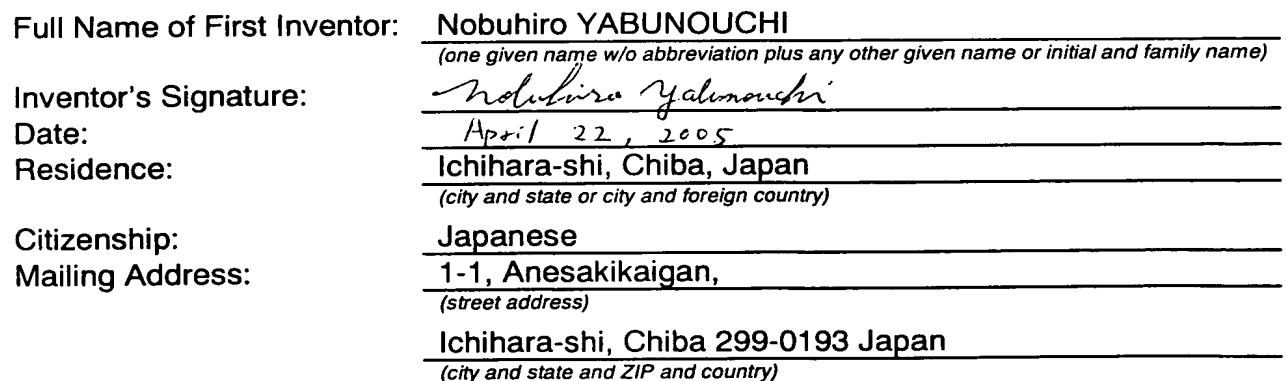 Full Name of First Inventor: Nobuhiro YABUNOUCHI
(one given name w/o abbreviation plus any other given name or initial and family name)
Inventor's Signature: Nobuhiro Yabunouchi
Date: April 22, 2005
Residence: Ichihara-shi, Chiba, Japan
(city and state or city and foreign country)
Citizenship: Japanese
Mailing Address: 1-1, Anesakikaigan,
(street address)
Ichihara-shi, Chiba 299-0193 Japan
(city and state and ZIP and country)